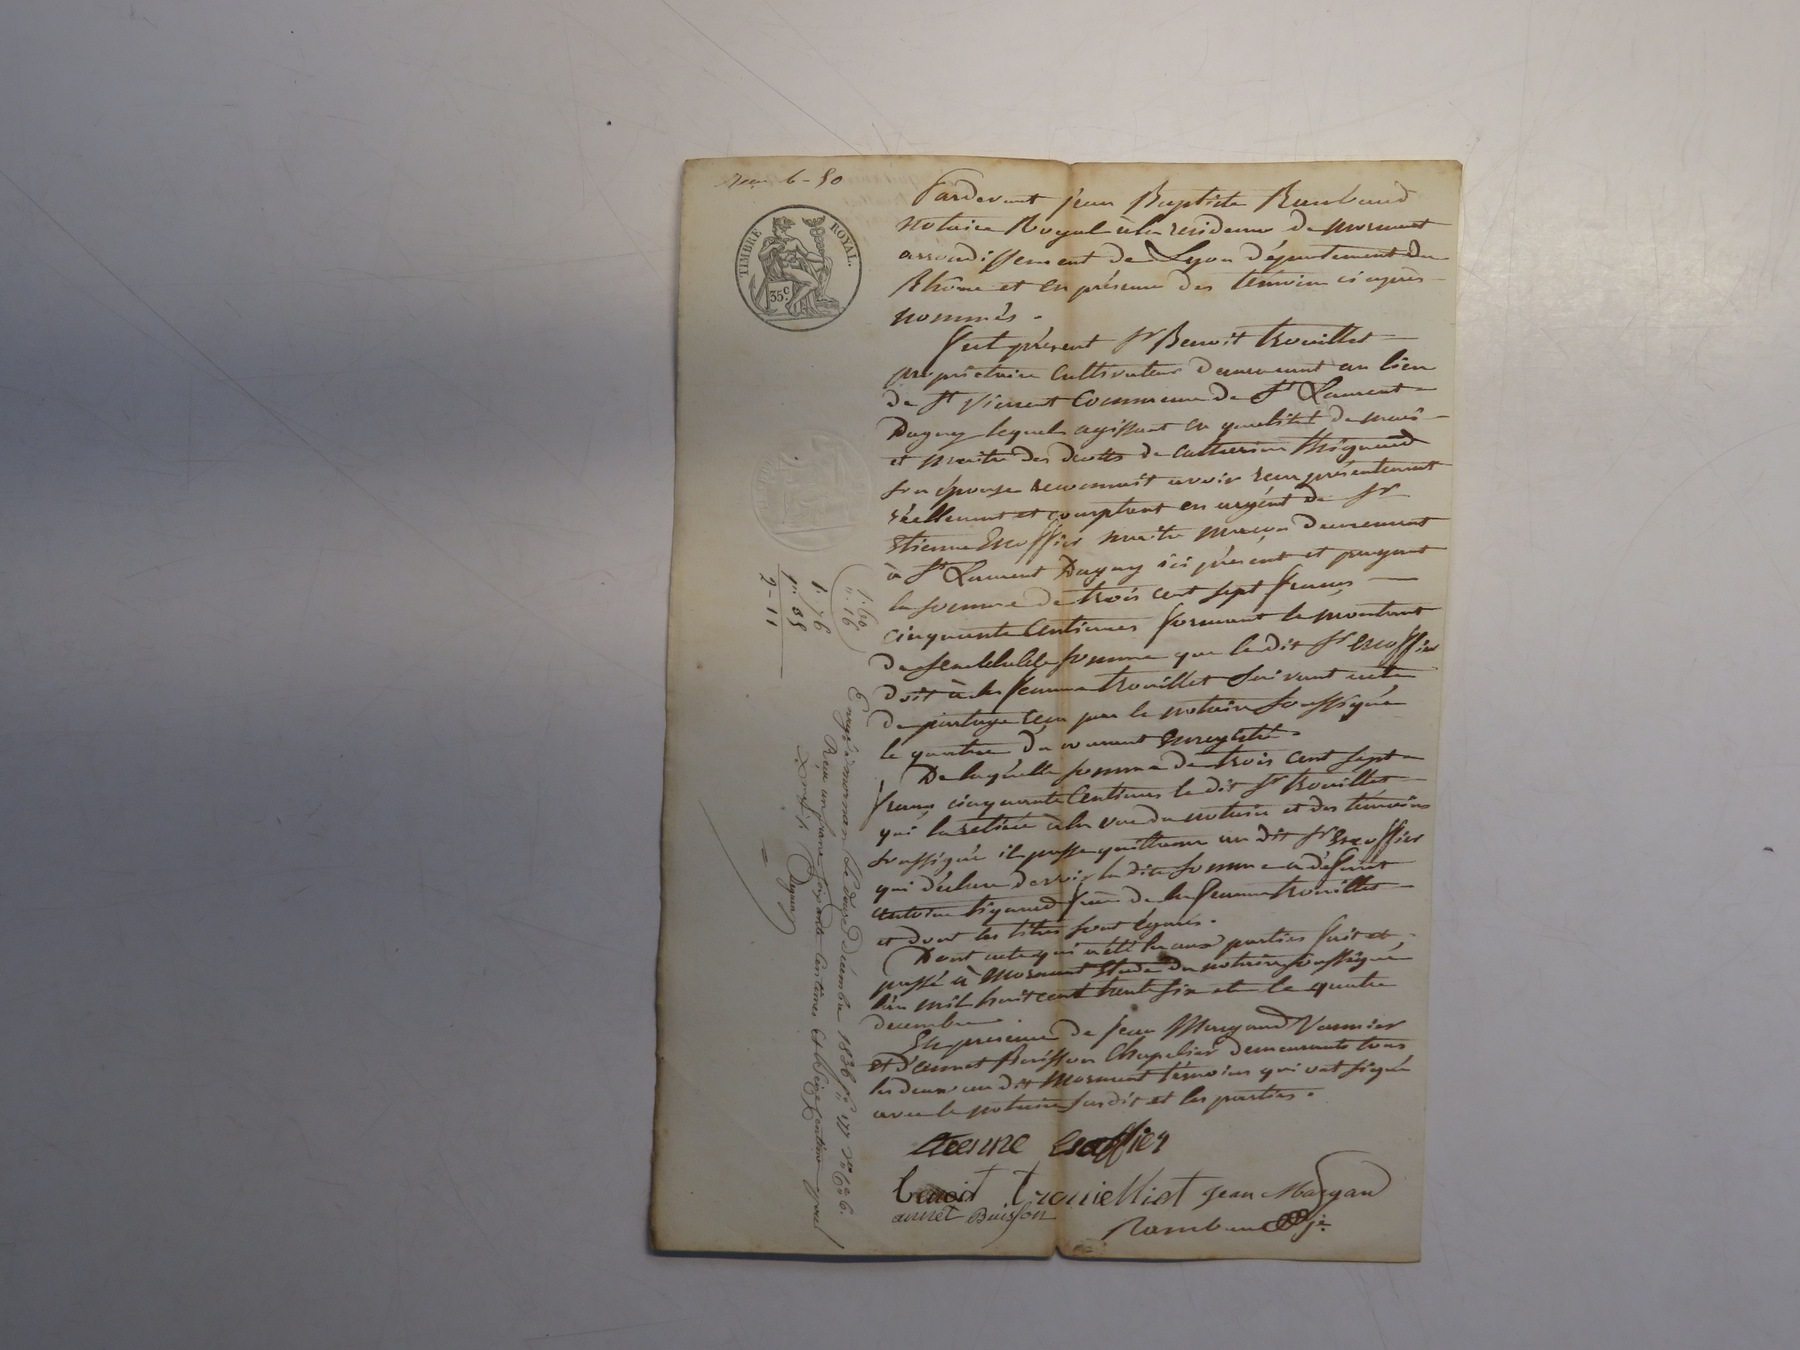 6-50
TIMBRE ROYAL.
35c
Pardevant jean Baptiste Rambaud
notaire Royal à la residence de mornant
arrondissement de Lyon département du
Rhône et en présence des témoins ci après
nommés.
fut présent Sr Benoit trouillet
propriétaire cultivateur demeurant au lieu
de St Vincent Commune de St Laurent
Dagny lequel agissant en qualité de mari
et maitre des droits de catherine
son épouse reconnait avoir reçu présentement
réellement et comptant en argent de Sr
Etienne Escoffier maitre maçon demeurant
à St Laurent Dagny ici présent et payant
la somme de trois cent sept francs
cinquante Centimes formant le montant
de semblable somme que le dit Sr Escoffier
doit à la femme trouillet suivant acte
de partage reçu par le notaire soussigné
le quatre du courant Enregistré.
De laquelle somme de trois cent sept
francs cinquante Centimes le dit Sr trouillet
qui la retirée à la vue du notaire et des témoins
soussignés il passe quittance au dit Sr Escoffier
qui déclare devoir la dite somme a défunt
antoine frère de la femme trouillet
et dont les titres sont égarés.
Dont acte qui a été lu aux parties fait et
passé à Mornant Etude du notaire soussigné
l'an mil huit cent trente six et le quatre
decembre
En présence de jean Margand Vannier
et d'annet Buisson Chapelier demeurants tous
les deux au dit Mornant témoins qui ont signé
avec le notaire susdit et les parties.
etienne Escoffier
benoit trouielliet jean Margand
annet Buisson
Rambaud je
1. 60
". 16
1. 76
". 35
2-11
Enregé à mornan Le douze Décembre 1836
Reçu un franc soixante Centimes et Seize Centimes pour